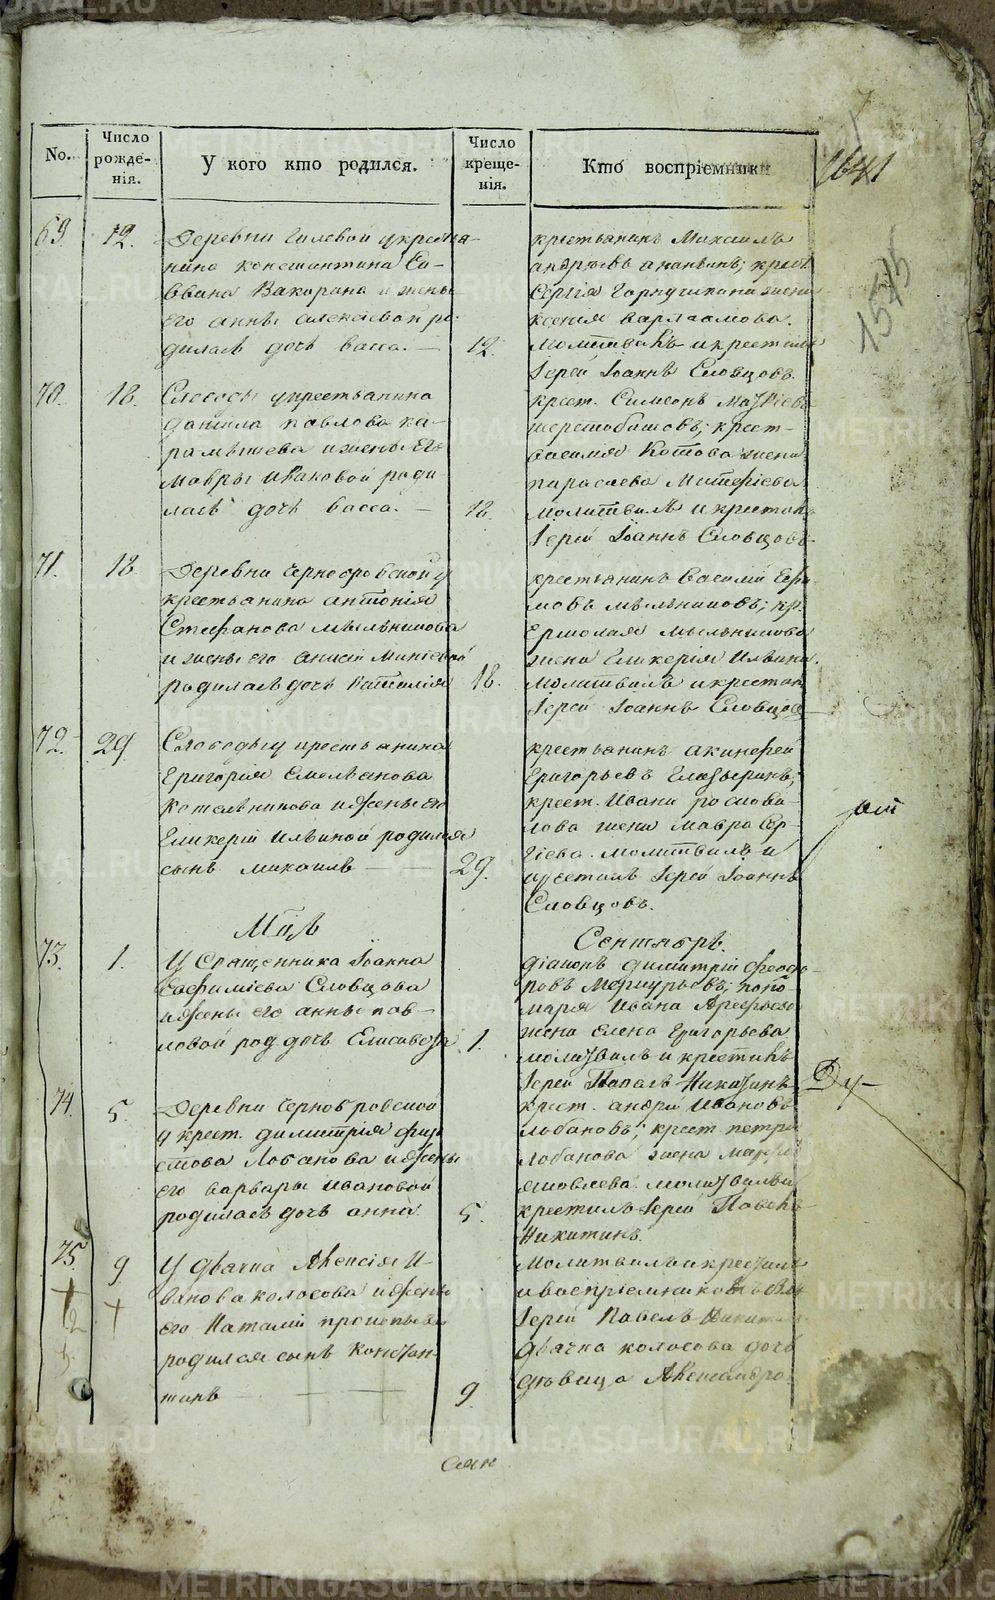 No.
Число рожде-
нія.
У кого кто родился.
Число
креще-
нія.
Кто воспріемники
1575
69.
12.
Деревни Гилевой у крестья-
нина Константина Са-
ввина Вакорина и жены
его Анны Алексѣвой ро-
дилась дочь Васса.
12.
крестьянинъ Михаилъ
Андрѣевъ Ананьинъ; крест.
Сергія жена
Ксенія Варлаамова.
Молитвилъ и крестилъ
Іерей Іоаннъ Словцовъ.
70.
18.
Слободы у крестьянина
Данила Павлова Ка-
рамышева и жены его
Мавры Ивановой роди
лась дочь Васса.
18.
крест. Симеонъ
крест-
Василія Котова жена
Параскева
Молитвилъ и крестилъ
Іерей Іоаннъ Словцовъ.
71.
18
Деревни Чернобровской у
крестьянина Антонія
Стефанова Мыльникова
и жены его Анисіи
родилась дочь Наталія
18.
крестьянинъ Василій Ефи
мовъ Мыльниковъ; кр.
Ермолая Мыльникова
жена Гликерія Ильина.
Молитвилъ и крестилъ
Іерей Іоаннъ Словцовъ
72.
29
Слободы у крестьянина
Григорія Емельянова
Котельникова и жены его
Гликеріи Ильиной родился
сынъ Михаилъ
29.
крестьянинъ Акинфей
Григорьевъ Глазыринъ;
крест. Ивана
жена Мавра Сер-
гіева. Молитвилъ и
крестилъ Іерей Іоаннъ
Словцовъ.
Мцъ
Сентябрь.
73.
1.
У Священника Іоанна
Евфиміева Словцова
и жены его Анны Пав-
ловой род дочь Елисавета
1.
Діаконъ Димитрій Феодо-
ровъ Меркурьевъ; поно-
маря Ивана Арефьева
жена Елена Григорьева
молитвилъ и крестилъ
Іерей Павелъ Никитинъ
74.
5.
Деревни Чернобровской
у крест. Димитрія
Лобанова и жены
его Варвары Ивановой
родилась дочь Анна
5.
крест. Андрей Ивановъ
Лобановъ; крест. Петра
Лобанова жена
Яковлева. молитвилъ и
крестилъ Іерей Павелъ
Никитинъ.
75.
9
У дьячка Алексія И-
ванова Колосова и жены
его Наталіи Прокопьевой
родился сынъ Констан-
тинъ
9.
Молитвилъ и крестилъ
и воспріемникомъ былъ
Іерей Павелъ Никитинъ
дьячка Колосова дочь
дѣвица Александра.
METRIKI.GASO-URAL.RU